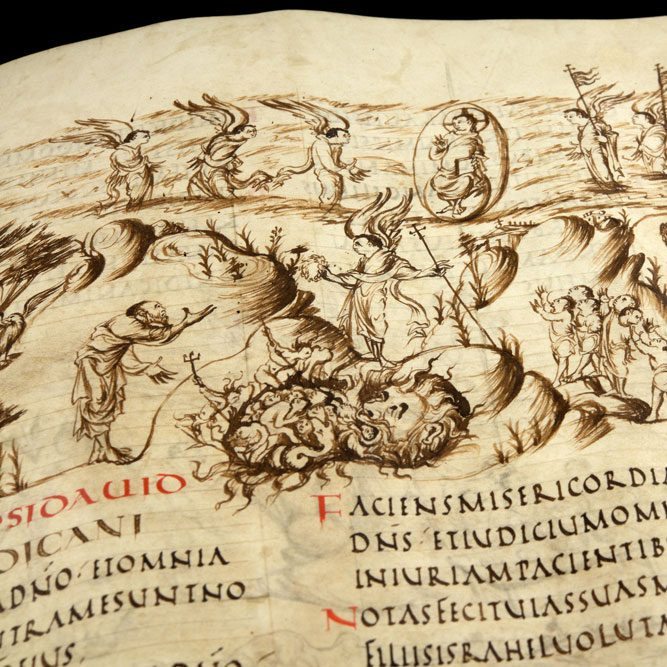 PSIDAUID
DICANI
ADNŌ·ETOMNIA
NTRAMESUNTNO
EIUS·
DNŌ
FACIENSMISERICORDIA
DN̄S·ETIUDICIUMOM
INIURIAMPACIENTIB
NOTASFECITUIASSUASM
FILIISISRAHELUOLUTA